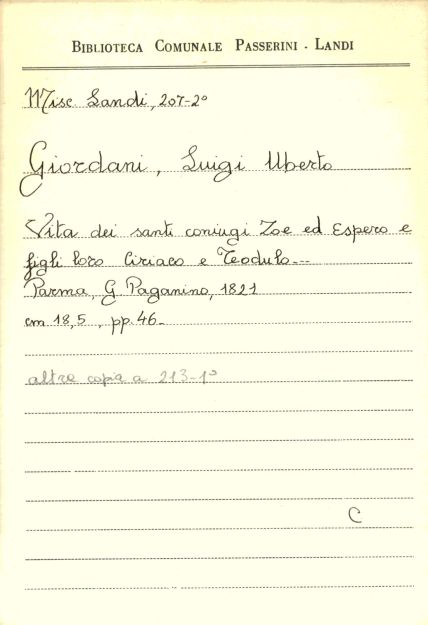 BIBLIOTECA COMUNALE PASSERINI - LANDI
Misc Landi, 207-2°
Giordani, Luigi Uberto
Vita dei santi coniugi Zoe ed Espero e
figli loro Ciriaco e Teodulo...
Parma, G. Paganino, 1821
cm 18,5, pp. 46.
altra copia a 213-1°
C